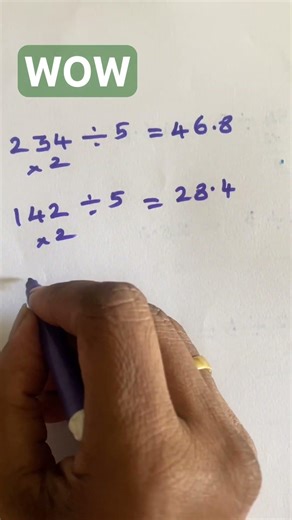 WOW
234 ÷ 5 = 46.8
×2
142 ÷ 5 = 28.4
×2